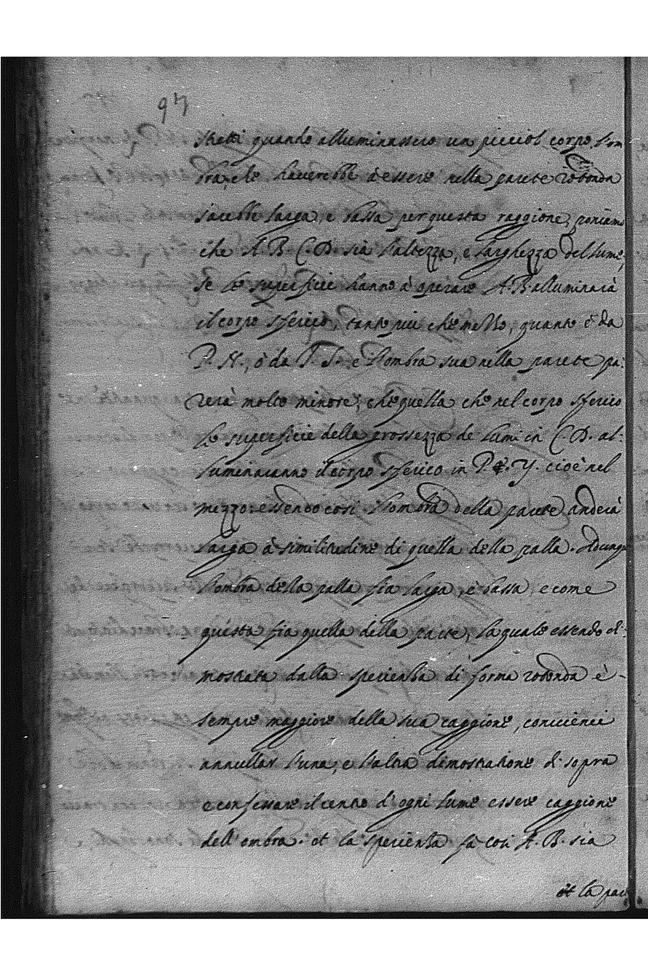 97
stretti quando alluminassero un picciol corpo. l'om
bra, che haverebbe à essere nella parete rotonda
sarebbe larga, e bassa per questa raggione, poniamo
che A. B. C. D. sia l'altezza, e larghezza del lume,
se le superficie hanno à operare A. B. alluminarà
il corpo sferico, tanto più che mezzo, quanto è da
P. N., ò da T. S. e l'ombra sua nella parete pa:
rerà molto minore, che quella che nel corpo sferico
le superficie della grossezza de lumi in C. D. al:
lumenaranno il corpo sferico in P. & Y. cioè nel
mezzo: essendo così l'ombra della parete anderà
larga à similitudine di quella della palla. Adunque
l'ombra della palla fia larga, e bassa, e come
questa fia quella della parete, la quale essendo di:
mostrata dalla sperienza di forma rotonda è
sempre maggiore della sua caggione, conviene
annullar l'una, e l'altra dimostratione di sopra
e confessare il centro d'ogni lume essere caggione
dell'ombra. et la sperienza fà così A. B. sia
et la pare